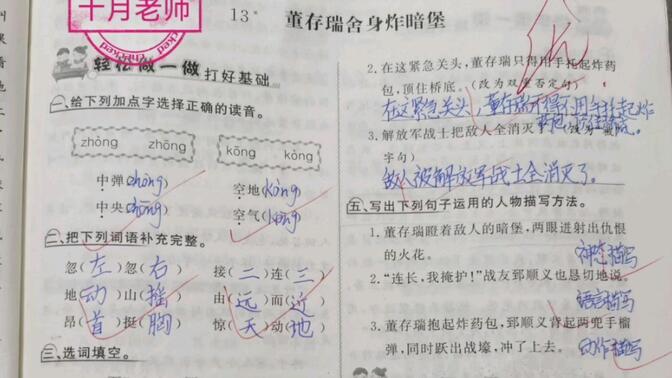 十月老师
13* 董存瑞舍身炸暗堡
轻松做一做 打好基础
一、给下列加点字选择正确的读音。
zhōng zhòng kōng kòng
中弹(zhòng) 空地(kòng)
中央(zhōng) 空气(kōng)
二、把下列词语补充完整。
忽(左)忽(右) 接(二)连(三)
地(动)山(摇) 由(远)而(近)
昂(首)挺(胸) 惊(天)动(地)
三、选词填空。
2.在这紧急关头,董存瑞只得用手托起炸药
包,顶住桥底。(改为双重否定句)
在这紧急关头,董存瑞不得不用手托起炸
药包,顶住桥底。
3.解放军战士把敌人全消灭了。(改为"被"
字句)
敌人被解放军战士全消灭了。
五、写出下列句子运用的人物描写方法。
1.董存瑞瞪着敌人的暗堡,两眼迸射出仇恨
的火花。
神态描写
2."连长,我掩护!"战友郅顺义也恳切地说。
语言描写
3.董存瑞抱起炸药包,郅顺义背起两兜手榴
弹,同时跃出战壕,冲了上去。 动作描写